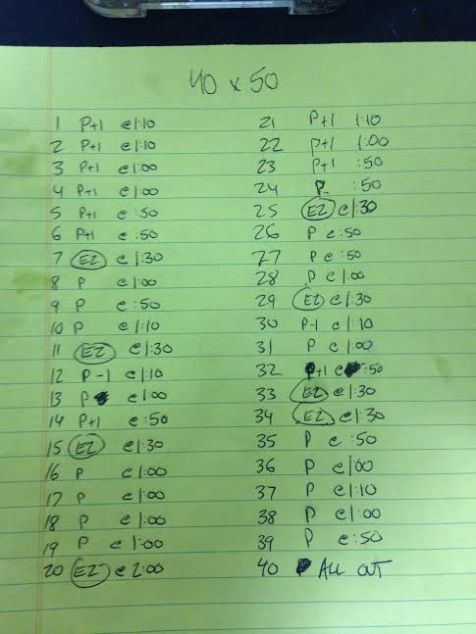 40 x 50
1 P+1 @1:10
2 P+1 @1:10
3 P+1 @1:00
4 P+1 @1:00
5 P+1 @:50
6 P+1 @:50
7 EZ @1:30
8 P @1:00
9 P @:50
10 P @1:10
11 EZ @1:30
12 P-1 @1:10
13 P @1:00
14 P+1 @:50
15 EZ @1:30
16 P @1:00
17 P @1:00
18 P @1:00
19 P @1:00
20 EZ @2:00
21 P+1 1:10
22 P+1 1:00
23 P+1 :50
24 P :50
25 EZ @1:30
26 P @:50
27 P @:50
28 P @1:00
29 EZ @1:30
30 P-1 @1:10
31 P @1:00
32 P+1 @:50
33 EZ @1:30
34 EZ @1:30
35 P @:50
36 P @1:00
37 P @1:10
38 P @1:00
39 P @:50
40 ALL OUT